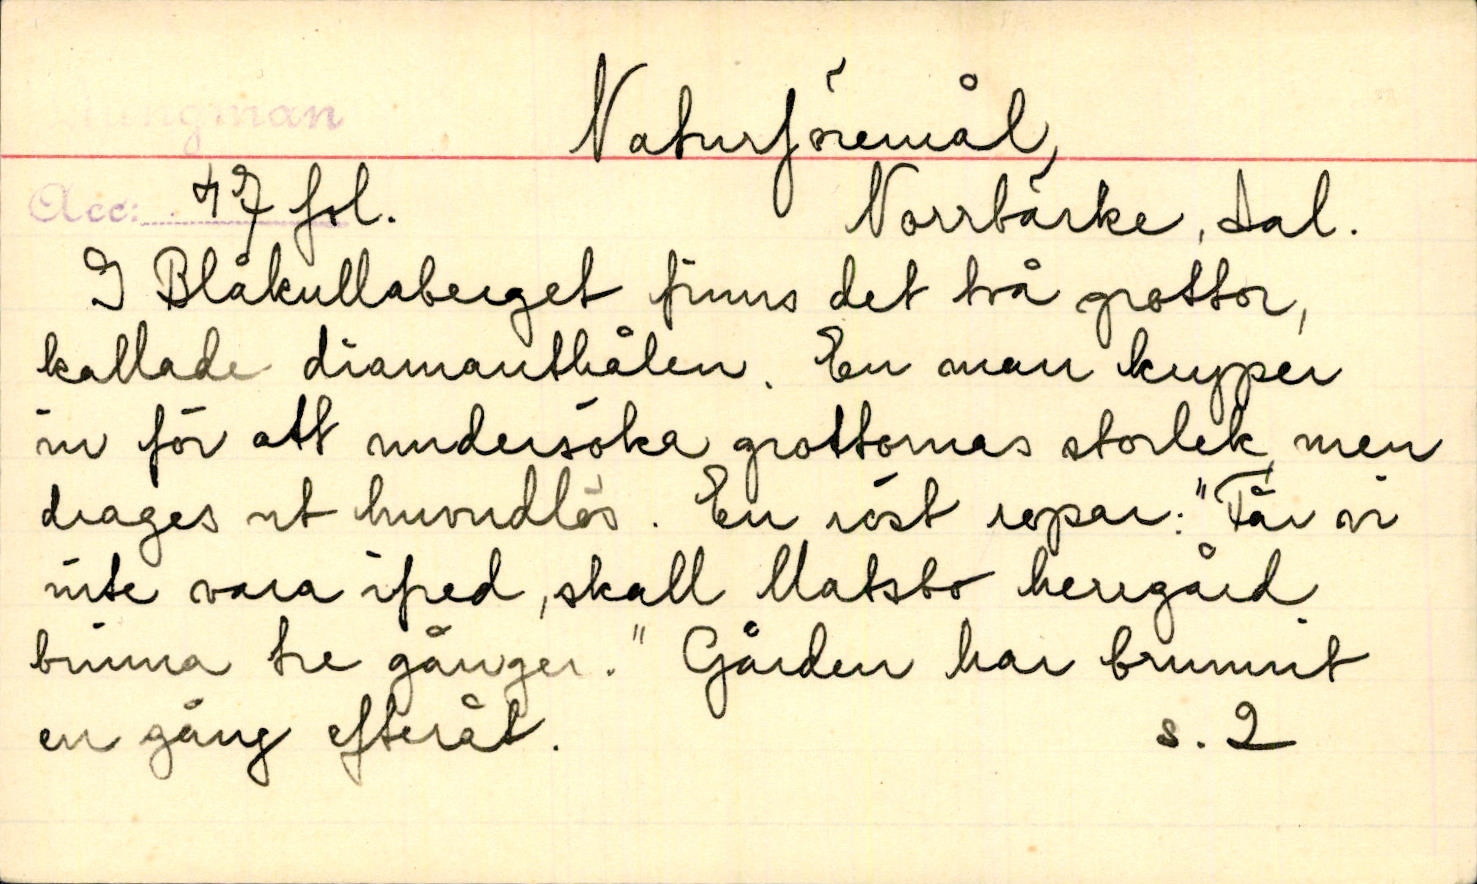 Naturföremål,
Acc: 47 fol. Norrbärke, Dal.
I Blåkullaberget finns det två grottor,
kallade diamanthålen. En man kryper
in för att undersöka grottornas storlek, men
drages ut huvudlös. En röst ropar: "Får vi
inte vara ifred, skall Matsbo herrgård
brinna tre gånger." Gården har brunnit
en gång efteråt. s. 2